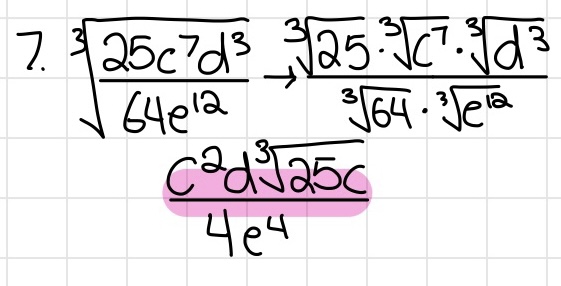 7. ∛(25c⁷d³/64e¹²) → (∛25 · ∛c⁷ · ∛d³)/(∛64 · ∛e¹²)
c²d∛25c/4e⁴